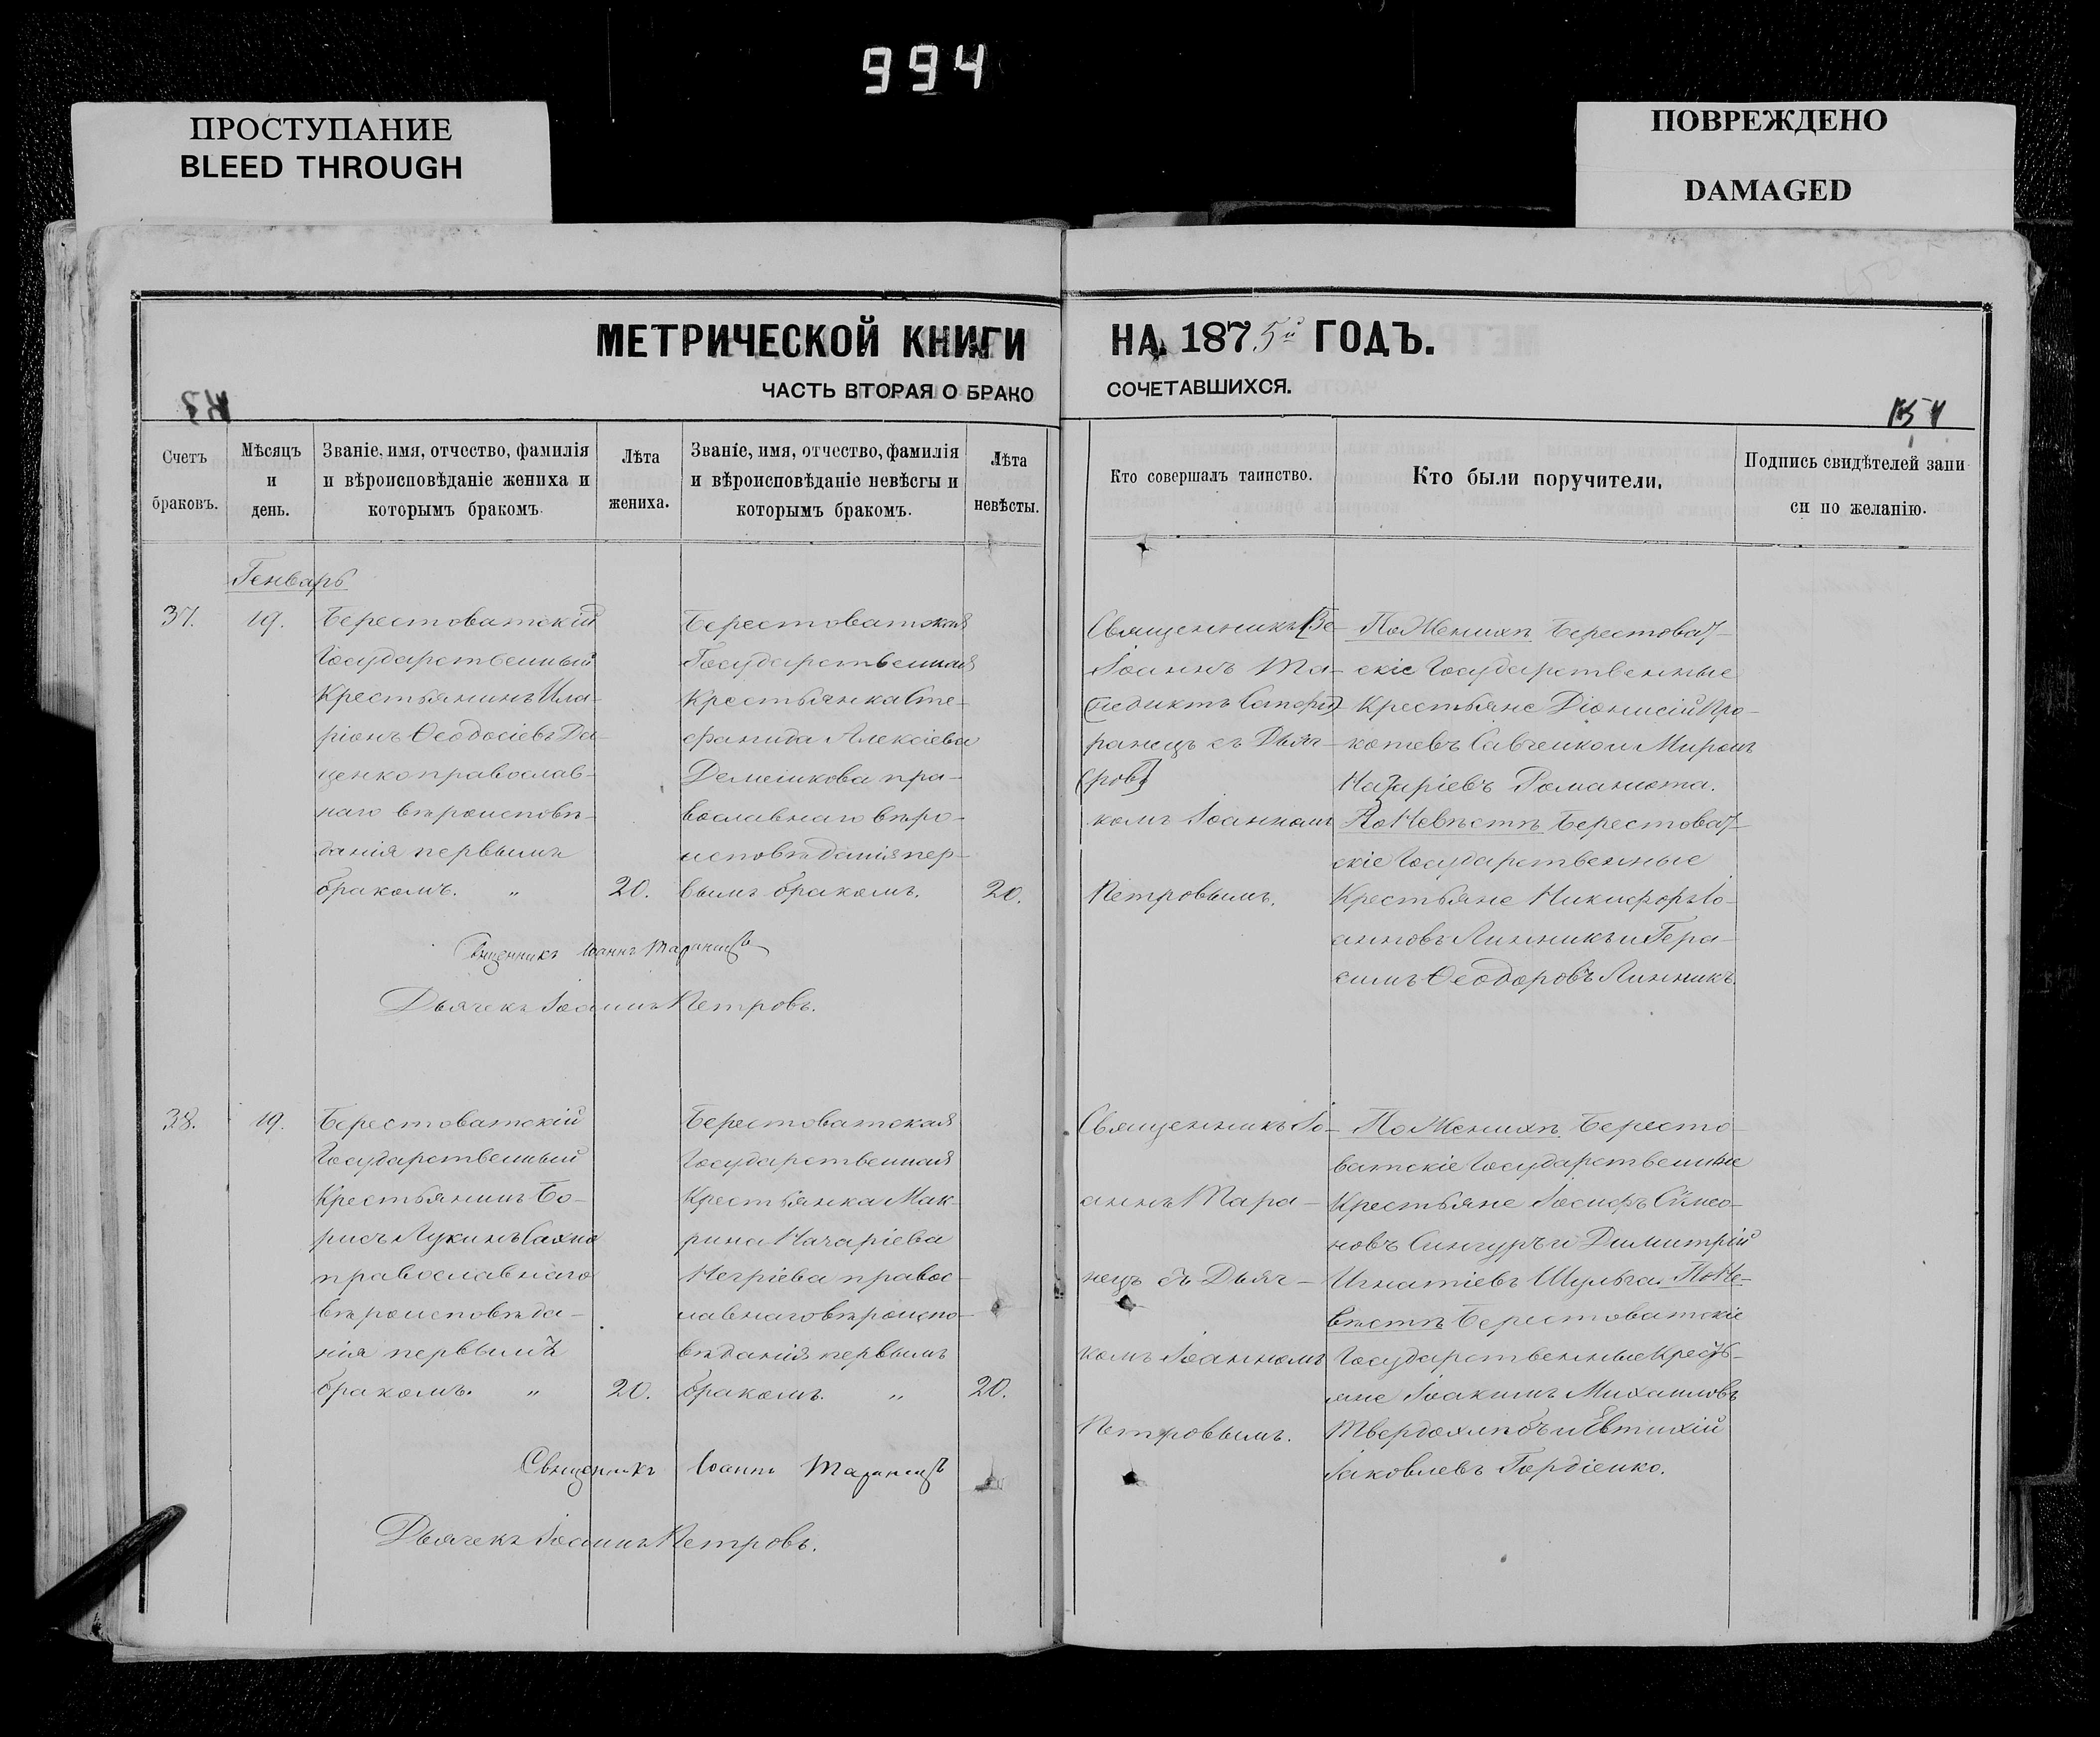 994
ПРОСТУПАНИЕ
BLEED THROUGH
ПОВРЕЖДЕНО
DAMAGED
МЕТРИЧЕСКОЙ КНИГИ НА 1875й ГОДЪ.
ЧАСТЬ ВТОРАЯ О БРАКО СОЧЕТАВШИХСЯ.
154
Счетъ
браковъ.
Мѣсяцъ
и
день.
Званіе, имя, отчество, фамилія
и вѣроисповѣданіе жениха и
которымъ бракомъ.
Лѣта
жениха.
Званіе, имя, отчество, фамилія
и вѣроисповѣданіе невѣсты и
которымъ бракомъ.
Лѣта
невѣсты.
Кто совершалъ таинство.
Кто были поручители.
Подпись свидѣтелей запи
си по желанію.
Генварь
37.
19.
Берестоватскій
Государственный
Крестьянинъ Ила-
ріонъ Ѳеодосіевъ Да-
ценко православ-
наго вѣроисповѣ-
данія первымъ
бракомъ. „
20.
Берестоватская
Государственная
Крестьянка Сте-
фанида Алексіева
Демешкова пра-
вославнаго вѣро-
исповѣданія пер-
вымъ бракомъ.
20.
Священникъ (Ве-
Іоаннъ Та-
ранецъ съ Дьяч-
комъ Іоанномъ
Петровымъ.
По Женихѣ Берестоват-
скіе Государственные
Крестьяне Діонисій Про-
копевъ Савченко и Миронъ
Назаріевъ Романюта.
По Невѣстѣ Берестоват-
скіе Государственные
Крестьяне Никифоръ Іо-
анновъ Линникъ и Гера-
симъ Ѳеодоровъ Линникъ.
Священникъ Іоаннъ Таранецъ
Дьячекъ Іоаннъ Петровъ.
38.
19.
Берестоватскій
Государственный
Крестьянинъ Бо-
рисъ Лукинъ Сахно
православнаго
вѣроисповѣда-
нія первымъ
бракомъ. „
20.
Берестоватская
Государственная
Крестьянка Мак-
рина Назаріева
Негріева правос-
лавнаго вѣроиспо-
вѣданія первымъ
бракомъ. „
20.
Священникъ Іо-
аннъ Тара-
нецъ съ Дьяч-
комъ Іоанномъ
Петровымъ.
По Женихѣ Бересто-
ватскіе Государственные
Крестьяне Іосифъ Сѵмео-
новъ Сингуръ и Димитрій
Игнатіевъ Шульга. По Не-
вѣстѣ Берестоватскіе
Государственные Кресть-
яне Іоакимъ Михаиловъ
Твердохлѣбъ и Евтихій
Іаковлевъ Гордіенко.
Священникъ Іоаннъ Таранецъ
Дьячекъ Іоаннъ Петровъ.